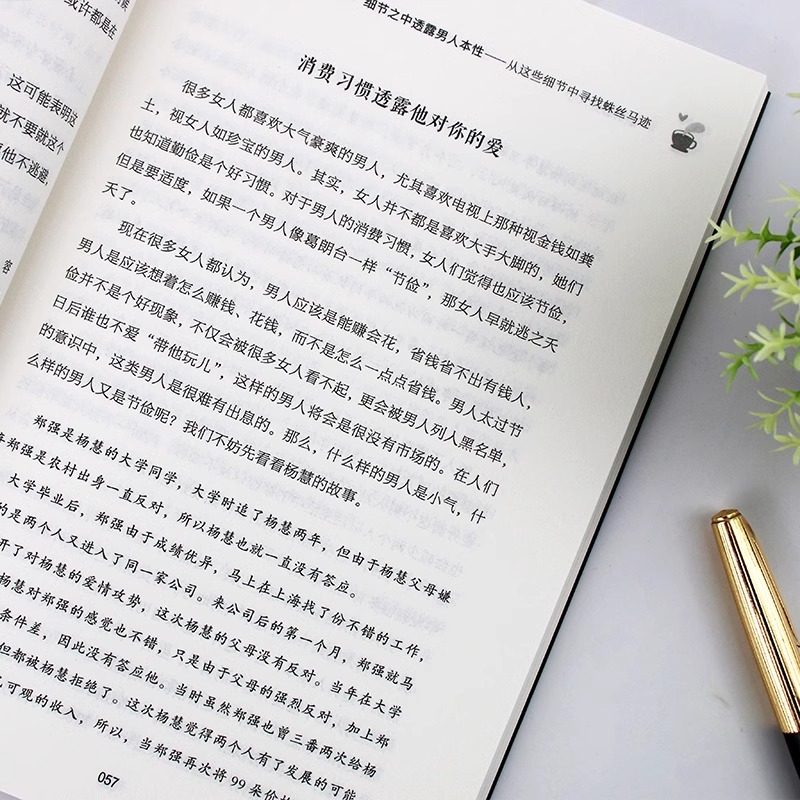 或许都是在
这可能表明这
就不要就这个
他不逃避,
容
细节之中透露男人本性——从这些细节中寻找蛛丝马迹
消费习惯透露他对你的爱
很多女人都喜欢大气豪爽的男人,尤其喜欢电视上那种视金钱如粪
土,视女人如珍宝的男人。其实,女人并不都是喜欢大手大脚的,她们
也知道勤俭是个好习惯。对于男人的消费习惯,女人们觉得也应该节俭,
但是要适度,如果一个男人像葛朗台一样“节俭”,那女人早就逃之夭
夭了。
现在很多女人都认为,男人应该是能赚会花,省钱省不出有钱人,
男人是应该想着怎么赚钱、花钱,而不是怎么一点点省钱。男人太过节
俭并不是个好现象,不仅会被很多女人看不起,更会被男人列入黑名单,
日后谁也不爱“带他玩儿”,这样的男人将会是很没有市场的。在人们
的意识中,这类男人是很难有出息的。那么,什么样的男人是小气,什
么样的男人又是节俭呢?我们不妨先看看杨慧的故事。
郑强是杨慧的大学同学,大学时追了杨慧两年,但由于杨慧父母嫌
弃郑强是农村出身一直反对,所以杨慧也就一直没有答应。
大学毕业后,郑强由于成绩优异,马上在上海找了份不错的工作,
的是两个人又进入了同一家公司。来公司后的第一个月,郑强就马
开了对杨慧的爱情攻势,这次杨慧的父母没有反对。当年在大学
杨慧对郑强的感觉也不错,只是由于父母的强烈反对,加上郑
条件差,因此没有答应他。当时虽然郑强也曾三番两次给杨
但都被杨慧拒绝了。这次杨慧觉得两个人有了发展的可能
可观的收入,所以,当郑强再次将99朵价
057